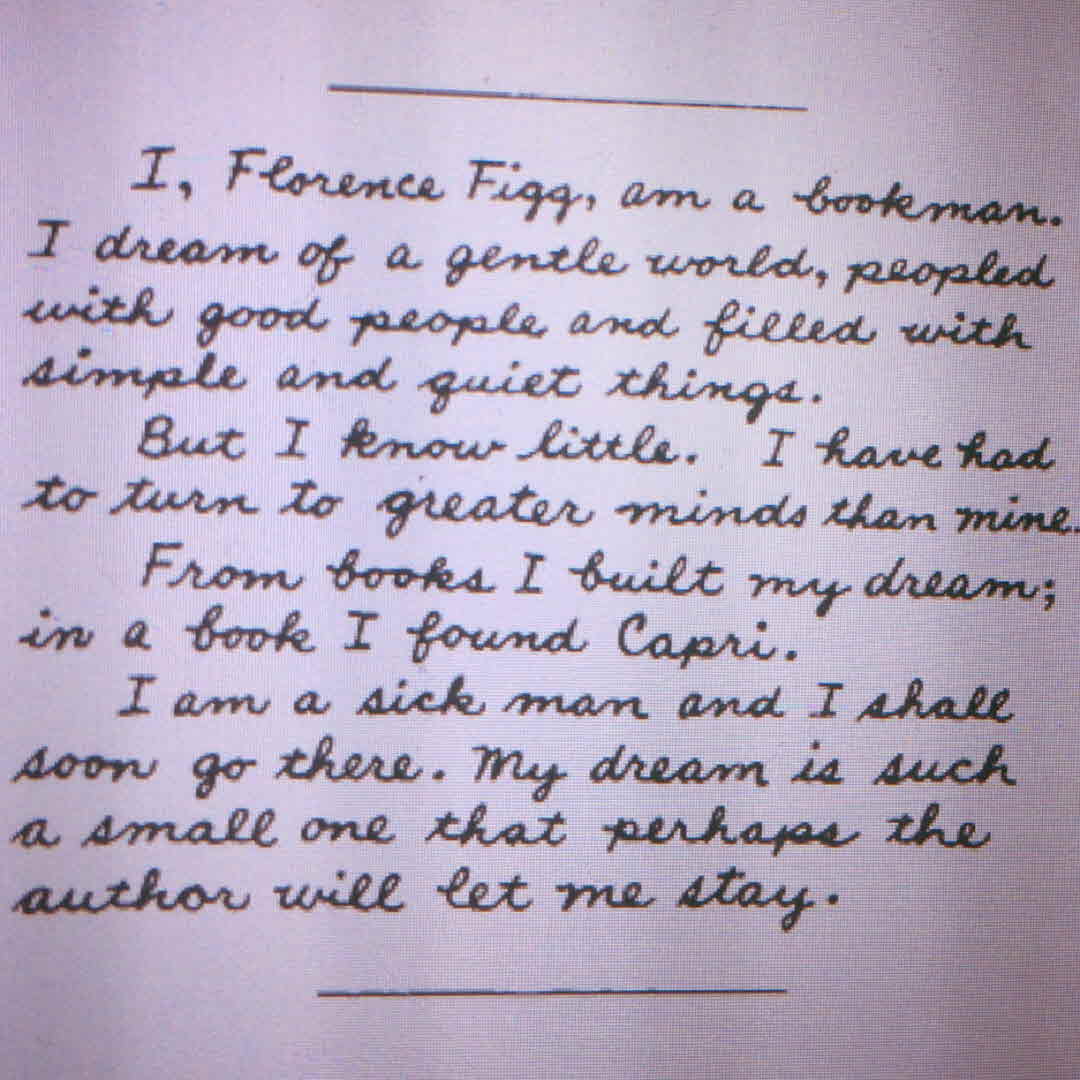 I, Florence Figg, am a bookman.
I dream of a gentle world, peopled
with good people and filled with
simple and quiet things.
But I know little. I have had
to turn to greater minds than mine.
From books I built my dream;
in a book I found Capri.
I am a sick man and I shall
soon go there. My dream is such
a small one that perhaps the
author will let me stay.